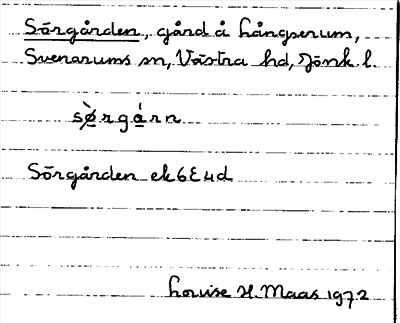 Sörgården, gård å Långserum,
Svenarums sn, Västra hd, Jönk. l.
sø̀rgárn
Sörgården ek 6E4d
Louise H. Maas 1972